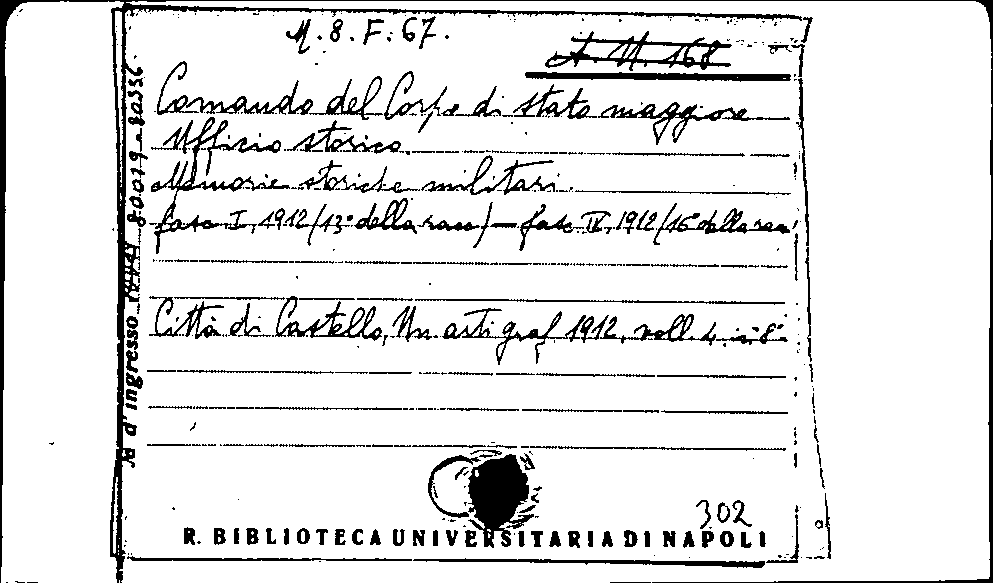 M. 8. F. 67.
A. N. 168
Comando del Corpo di stato maggiore
Ufficio storico.
Memorie storiche militari.
fasc I, 1912 (13° della racc) — fasc IV, 1912 (16° della racc)
Città di Castello, Un. arti graf 1912, voll. 4 in 8°
d'ingresso 80019-80556
302
R. BIBLIOTECA UNIVERSITARIA DI NAPOLI